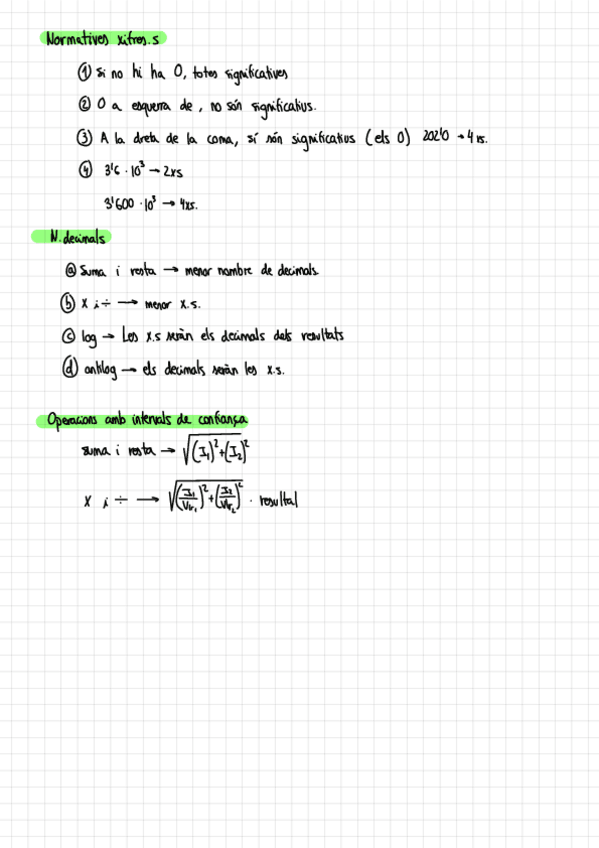 Normatives xifres.s
① Si no hi ha 0, totes significatives
② 0 a esquerra de , no són significatius.
③ A la dreta de la coma, sí són significatius (els 0) 202'0 → 4 xs.
④ 3'6 · 10³ → 2xs
3'600 · 10³ → 4xs.
N. decimals
ⓐ Suma i resta → menor nombre de decimals
ⓑ X i ÷ → menor x.s.
ⓒ log → Les x.s seràn els decimals dels resultats
ⓓ antilog → els decimals seràn les x.s.
Operacions amb intervals de confiança
suma i resta → √(I₁)²+(I₂)²
X i ÷ → √(I₁/Vr₁)²+(I₂/Vr₂)² · resultat